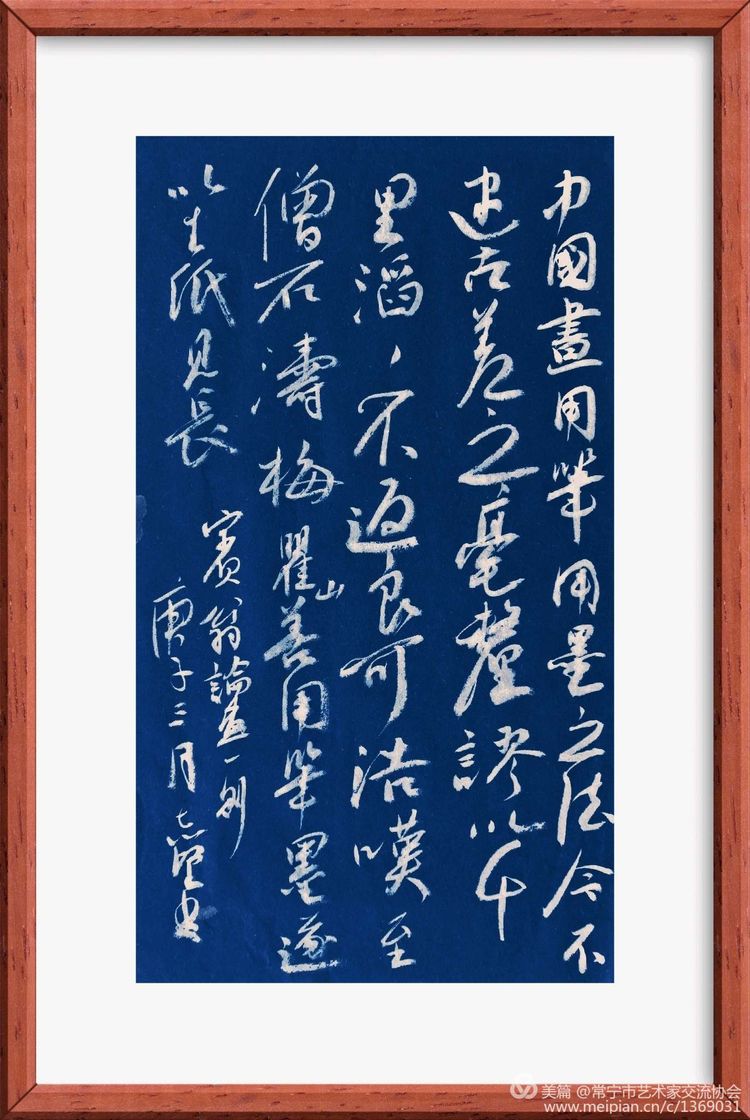 中國畫用筆用墨之法今不
逮古差之毫釐謬以千
里滔滔不返良可浩嘆至
僧石濤梅瞿山善用筆墨遂
以生紙見長
賓翁論畫一則
庚子三月
美篇 @常宁市艺术家交流协会
www.meipian.cn/c/1369031